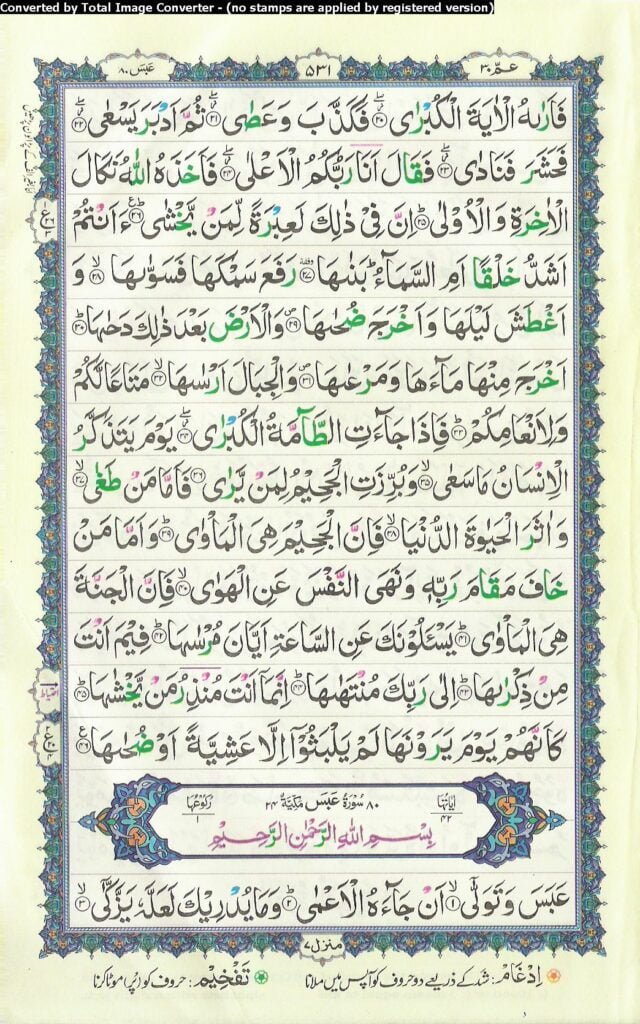 Converted by Total Image Converter - (no stamps are applied by registered version)
عَمّ ٣٠
٥٣١
عَبَسَ ٨٠
فَاَرٰىهُ الْاٰيَةَ الْكُبْرٰى ﴿٢٠﴾ فَكَذَّبَ وَعَصٰى ﴿٢١﴾ ثُمَّ اَدْبَرَ يَسْعٰى ﴿٢٢﴾
فَحَشَرَ فَنَادٰى ﴿٢٣﴾ فَقَالَ اَنَا رَبُّكُمُ الْاَعْلٰى ﴿٢٤﴾ فَاَخَذَهُ اللّٰهُ نَكَالَ
الْاٰخِرَةِ وَالْاُوْلٰى ﴿٢٥﴾ اِنَّ فِيْ ذٰلِكَ لَعِبْرَةً لِّمَنْ يَّخْشٰى ﴿٢٦﴾ ءَاَنْتُمْ
اَشَدُّ خَلْقًا اَمِ السَّمَآءُ بَنٰىهَا ﴿٢٧﴾ رَفَعَ سَمْكَهَا فَسَوّٰىهَا ﴿٢٨﴾ وَ
اَغْطَشَ لَيْلَهَا وَاَخْرَجَ ضُحٰىهَا ﴿٢٩﴾ وَالْاَرْضَ بَعْدَ ذٰلِكَ دَحٰىهَا ﴿٣٠﴾
اَخْرَجَ مِنْهَا مَآءَهَا وَمَرْعٰىهَا ﴿٣١﴾ وَالْجِبَالَ اَرْسٰىهَا ﴿٣٢﴾ مَتَاعًا لَّكُمْ
وَلِاَنْعَامِكُمْ ﴿٣٣﴾ فَاِذَا جَآءَتِ الطَّآمَّةُ الْكُبْرٰى ﴿٣٤﴾ يَوْمَ يَتَذَكَّرُ
الْاِنْسَانُ مَا سَعٰى ﴿٣٥﴾ وَبُرِّزَتِ الْجَحِيْمُ لِمَنْ يَّرٰى ﴿٣٦﴾ فَاَمَّا مَنْ طَغٰى ﴿٣٧﴾
وَاٰثَرَ الْحَيٰوةَ الدُّنْيَا ﴿٣٨﴾ فَاِنَّ الْجَحِيْمَ هِيَ الْمَاْوٰى ﴿٣٩﴾ وَاَمَّا مَنْ
خَافَ مَقَامَ رَبِّهٖ وَنَهَى النَّفْسَ عَنِ الْهَوٰى ﴿٤٠﴾ فَاِنَّ الْجَنَّةَ
هِيَ الْمَاْوٰى ﴿٤١﴾ يَسْـَٔلُوْنَكَ عَنِ السَّاعَةِ اَيَّانَ مُرْسٰىهَا ﴿٤٢﴾ فِيْمَ اَنْتَ
مِنْ ذِكْرٰىهَا ﴿٤٣﴾ اِلٰى رَبِّكَ مُنْتَهٰىهَا ﴿٤٤﴾ اِنَّمَآ اَنْتَ مُنْذِرُ مَنْ يَّخْشٰىهَا ﴿٤٥﴾
كَاَنَّهُمْ يَوْمَ يَرَوْنَهَا لَمْ يَلْبَثُوْٓا اِلَّا عَشِيَّةً اَوْ ضُحٰىهَا ﴿٤٦﴾
اٰيَاتُهَا ٤٢
٨٠ سُوْرَةُ عَبَسَ مَكِّيَّةٌ ٢٤
رُكُوْعُهَا ١
بِسْمِ اللّٰهِ الرَّحْمٰنِ الرَّحِيْمِ
عَبَسَ وَتَوَلّٰى ﴿١﴾ اَنْ جَآءَهُ الْاَعْمٰى ﴿٢﴾ وَمَا يُدْرِيْكَ لَعَلَّهٗ يَزَّكّٰى ﴿٣﴾
منزل ٧
اِدْغَام: شد کے ذریعے دو حروف کو آپس میں ملانا
تَفْخِيْم: حروف کو (پُر) موٹا کرنا